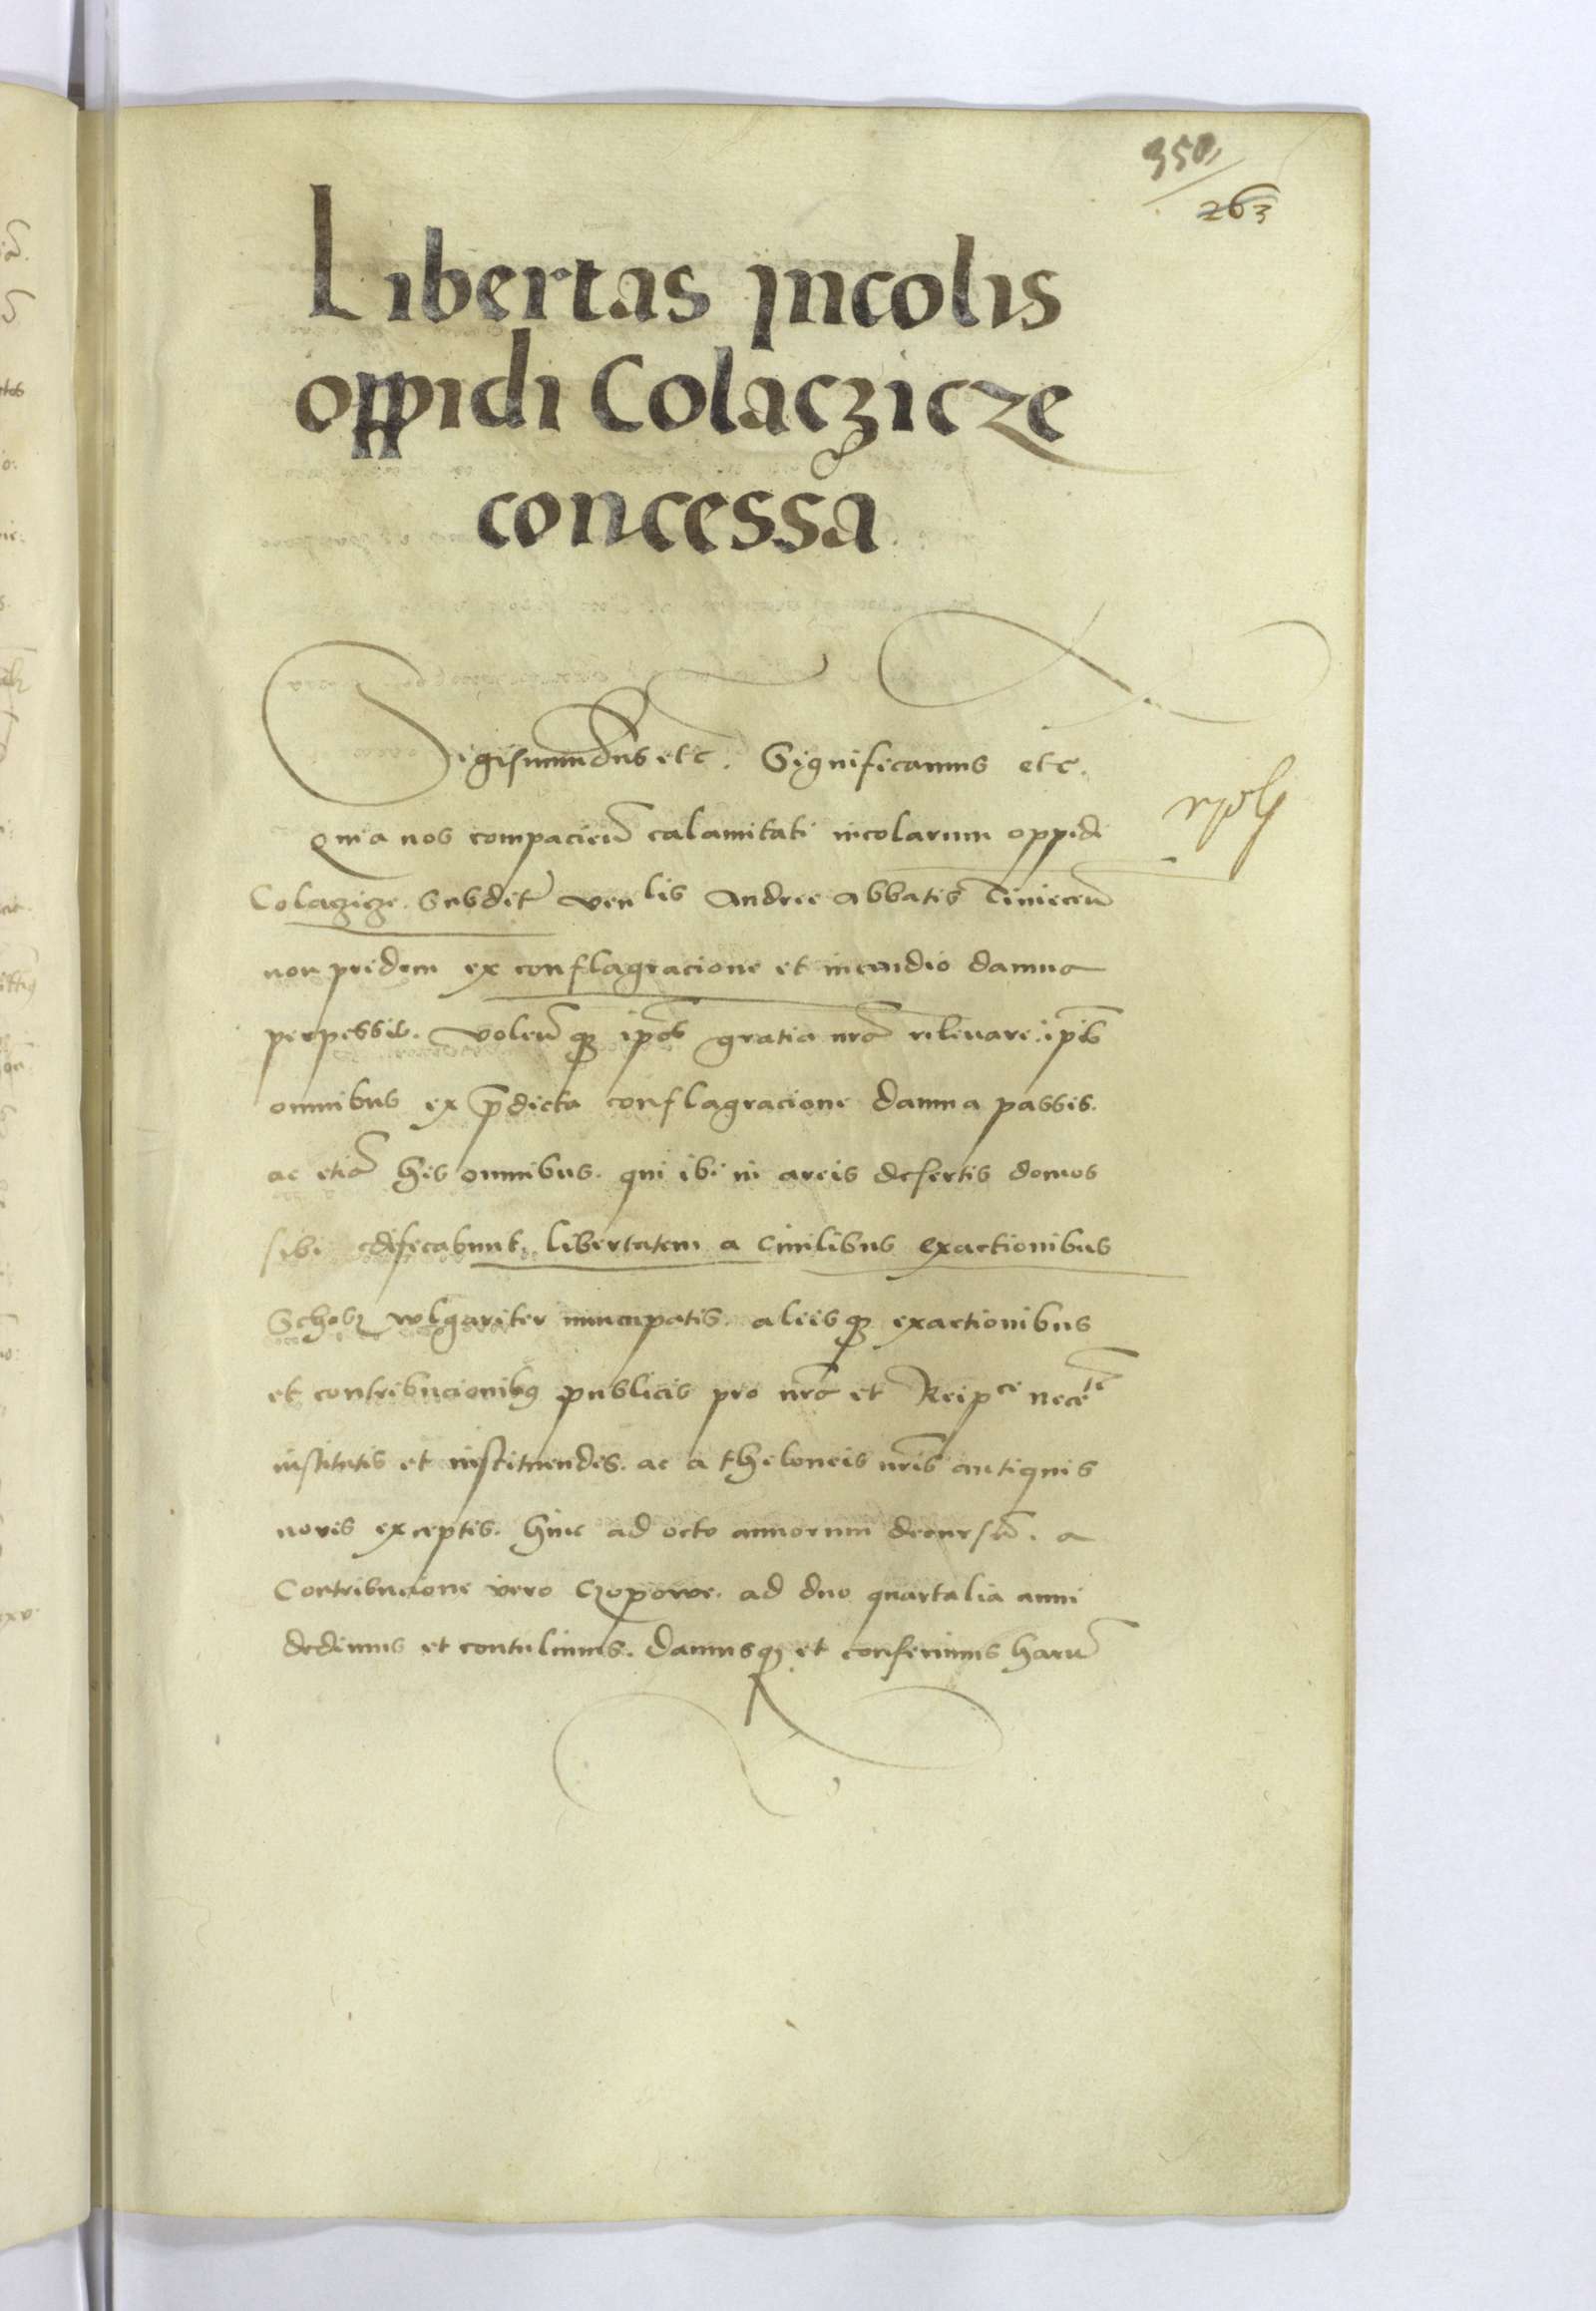 350
263
Libertas Incolis
oppidi Colaczicze
concessa
Sigismundus etc. Significamus etc.
Quia nos compacien̄ calamitati incolarum oppidi
Colaczicze. Subdit ven lis Andree Abbatis Tiniecen̄
non pridem ex conflagracione et incendio damna
perpessis. Volen̄ q3 ip̄os gratia nr̄a relevare. ip̄is
omnibus ex p̄dicta conflagracione damna passis.
ac etia̅ his omnibus. qui ibi in areis desertis domos
sibi edificabunt, libertatem a Civilibus exactionibus
Schosz wlgariter nuncupatis. aliisq3 exactionibus
et contribucionib9 publicis pro nr̄a et Reip ce nece te
institutis et instituendis. ac a theloneis nr̄is antiquis
novis exceptis. hinc ad octo annorum decursū. a
Contribucione vero Czopowe. ad duo quartalia anni
dedimus et contulimus. Damusq3 et conferimus harū